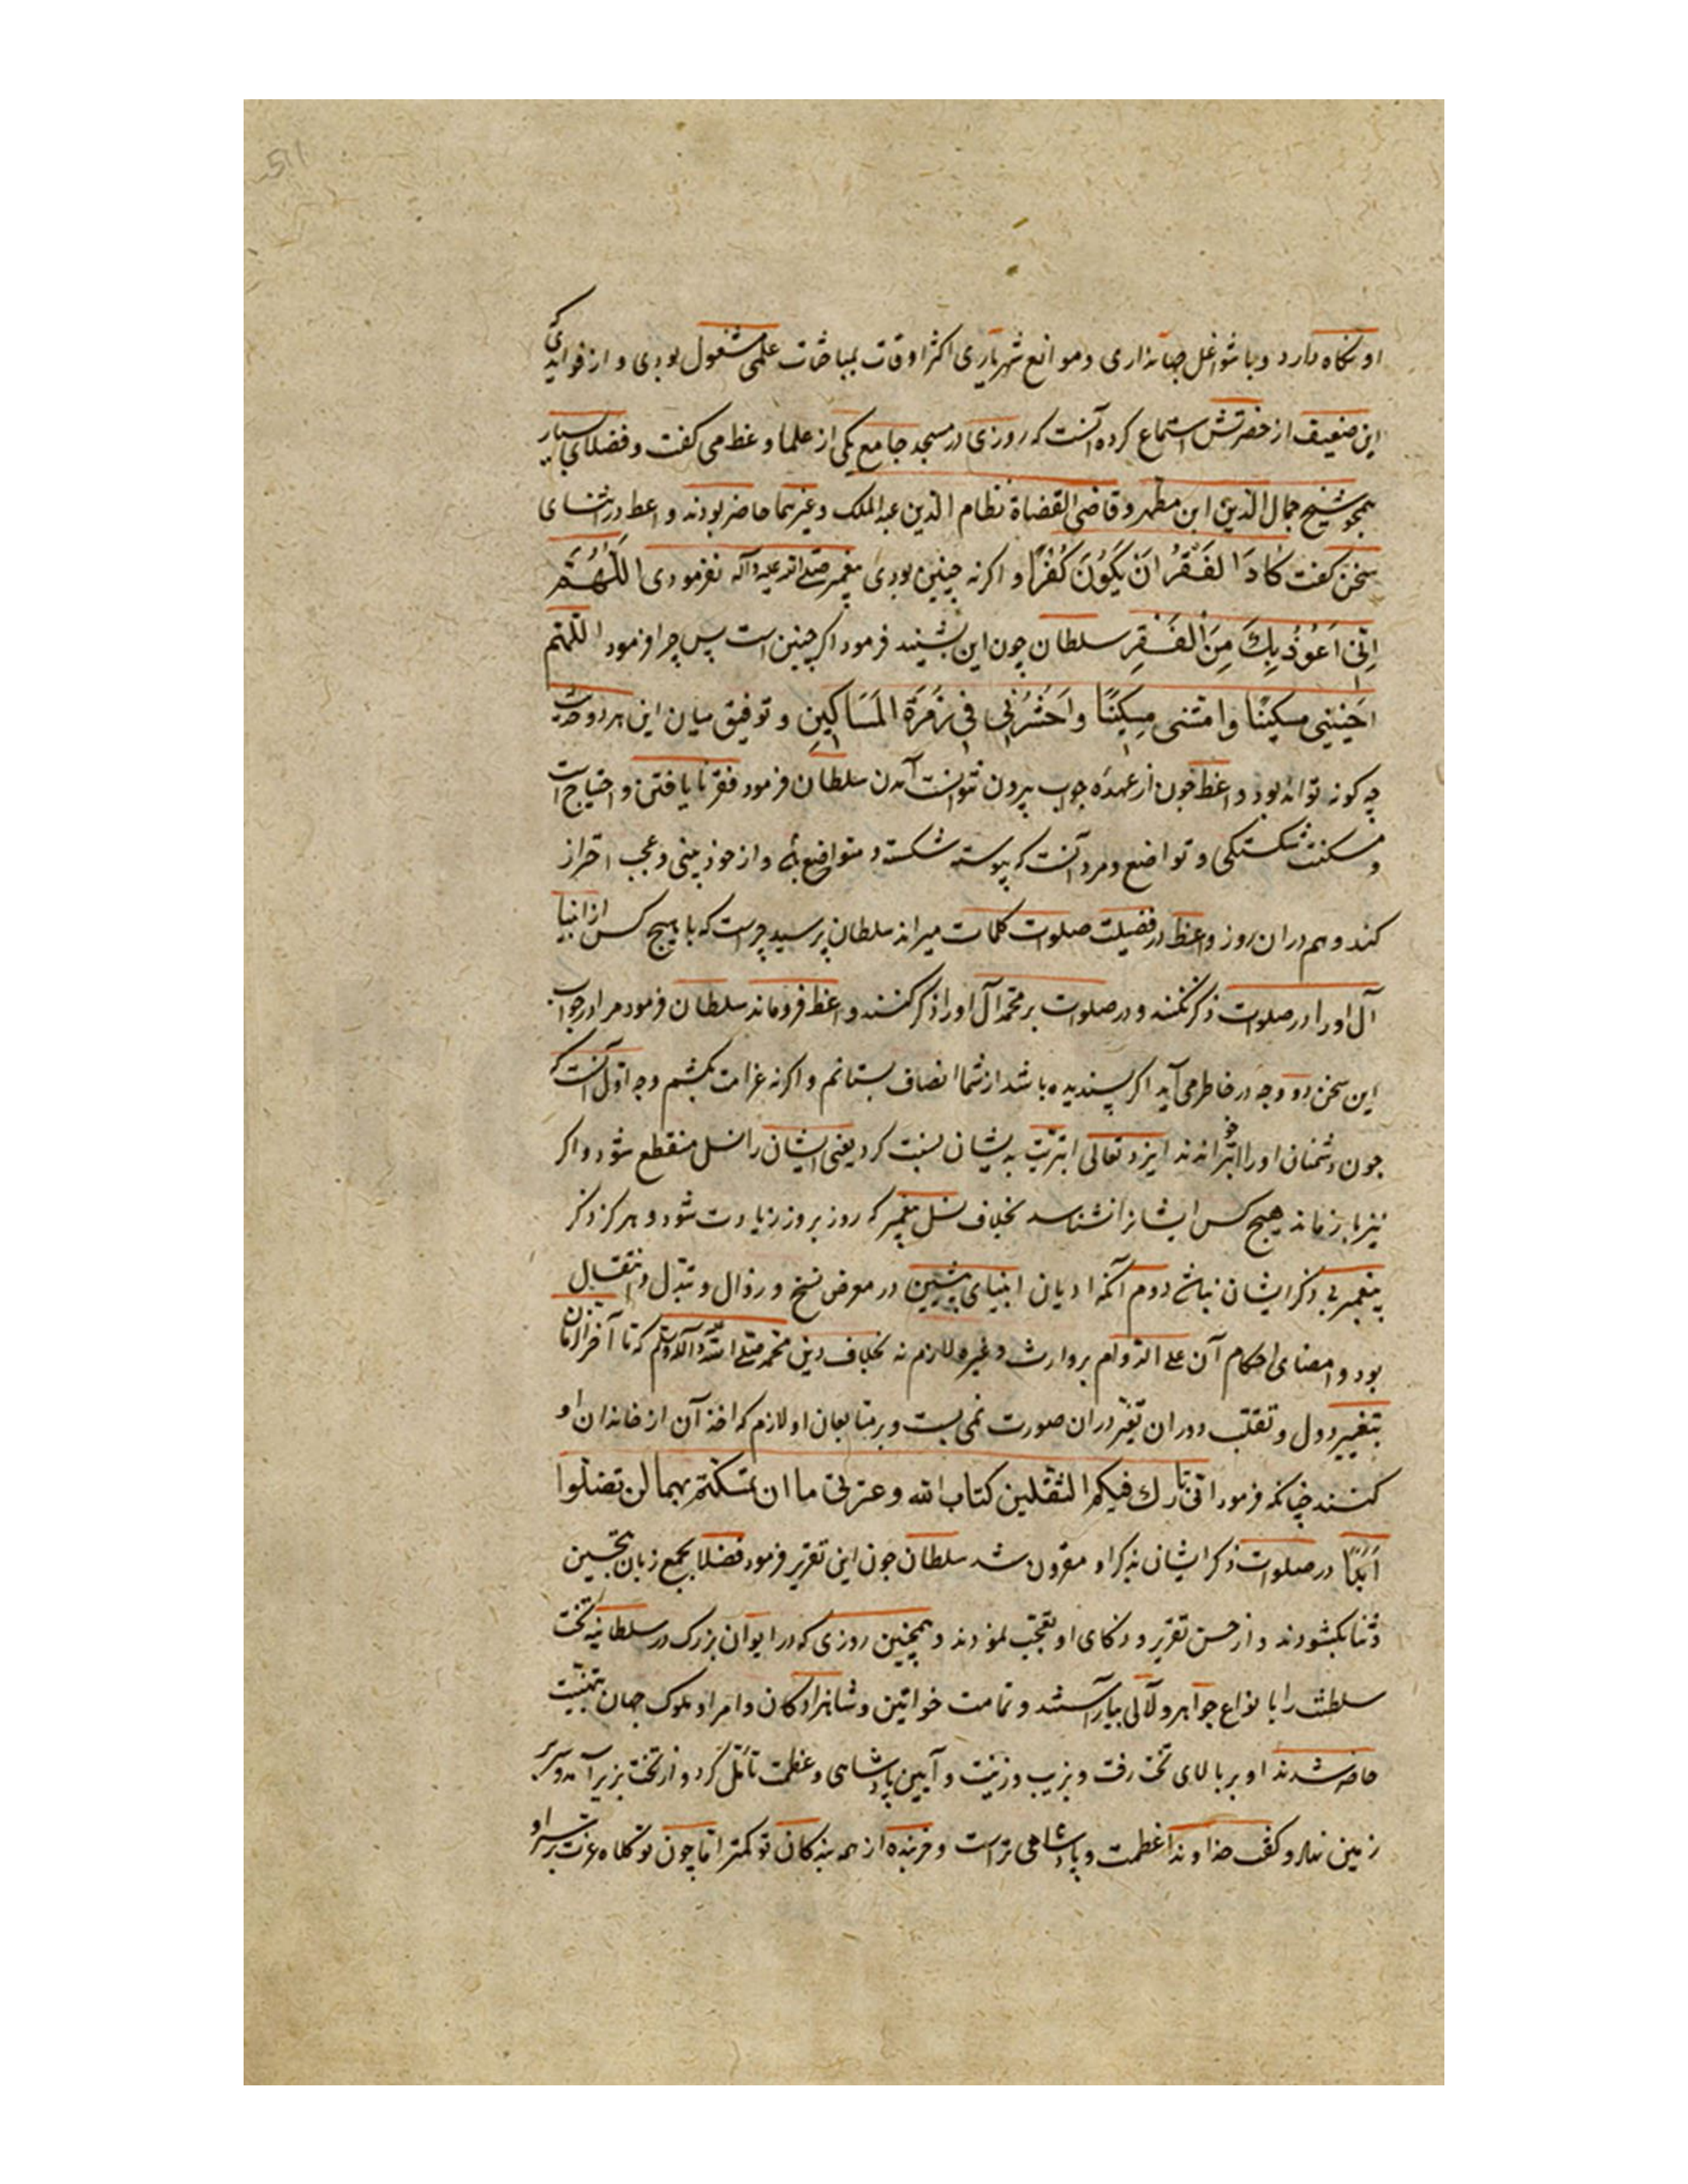 او نگاه دارد و با شواغل جهانداری و موانع شهریاری اکثر اوقات بمباحثات علمی مشغول بودی و از فوایدی که
این ضعیف از حضرتش استماع کرده آنست که روزی در مسجد جامع یکی از علما وعظ می کفت و فضلای بسیار
همچو شیخ جمال الدین ابن مطهر و قاضی القضاة نظام الدین عبد الملک و غیرهما حاضر بودند واعظ در اثنای
سخن کفت كَادَ الفَقرُ اَن يَكُونَ كُفرًا و اکرنه چنین بودی پیغمبر صلی الله علیه وآله نفرمودی اَللّهُمَّ
اِنّی اَعُوذُ بِكَ مِنَ الفَقرِ سلطان چون این بشنید فرمود اکر چنین است پس چرا فرمود اللهم
اَحيِنِی مسکینًا وامتنی مِسکِینًا وَاحشُرنِی فِی زُمرَة المَسَاکِینِ و توفیق میان این هر دو حدیث
چه کونه تواند بود واعظ چون از عهدهٔ جواب بیرون نتوانست آمدن سلطان فرمود فقر نایافتن و احتیاج است
و مسکنت شکستکی و تواضع و مرد آنست که پیوسته شکسته و متواضع باشد و از خود بینی و عجب احتراز
کند و هم دران روز واعظ در فضیلت صلوات کلمات میراند سلطان پرسید چراست که با هیچ کس از انبیا
آل او را در صلوات ذکر نکنند و در صلوات بر محمد آل او را ذکر کنند واعظ فروماند سلطان فرمود مرا در جواب
این سخن دو وجه در خاطر می آید اکر پسندیده باشد از شما انصاف بستانم و اکرنه غرامت بکشم وجه اول آنست که
چون دشمنان او را ابتر خواندند ایزد تعالی ابتریت به یشان نسبت کرد یعنی ایشان را نسل منقطع شود و اکر
نیز باز ماند هیچ کس ایشانرا نشناسد بخلاف نسل پیغمبر که روز بروز زیادت شود و هرکز ذکر
پیغمبر بی ذکر ایشان نباشد دوم آنکه ادیان انبیای پیشین در معرض نسخ و زوال و تبدل و انتقال
بود و امضای احکام آن علی الدوام بر وارث و غیره لازم نه بخلاف دین محمد صلی الله علیه وآله وسلم که تا آخر الزمان
بتغییر دول و تقلب دوران تغیر دران صورت نمی بست و بر متابعان او لازم که اخذ آن از خاندان او
کنند چنانکه فرمود انی تارك فیکم الثقلین کتاب الله وعترتی ما ان تمسکتم بهما لن تضلوا
اَبَدًا در صلوات ذکر ایشان بذکر او مقرون شد سلطان چون این تقریر فرمود فضلا بجمع زبان تحسین
و ثنا بکشودند و از حسن تقریر و ذکای او تعجب نمودند و همچنین روزی که در ایوان بزرک در سلطانیه تخت
سلطنت را با نواع جواهر و لآلی بیاراستند و تمامت خواتین و شاهزادکان و امرا و ملوک جهان بتهنیت
حاضر شدند او بر بالای تخت رفت و بزیب و زینت و آیین پادشاهی و عظمت تأمل کرد و از تخت بزیر آمد و سر بر
زمین نهاد و کفت خداوندا عظمت و پادشاهی تراست و خربنده از همه بندکان تو کمتر اما چون تو کلاه عزت بر سر او